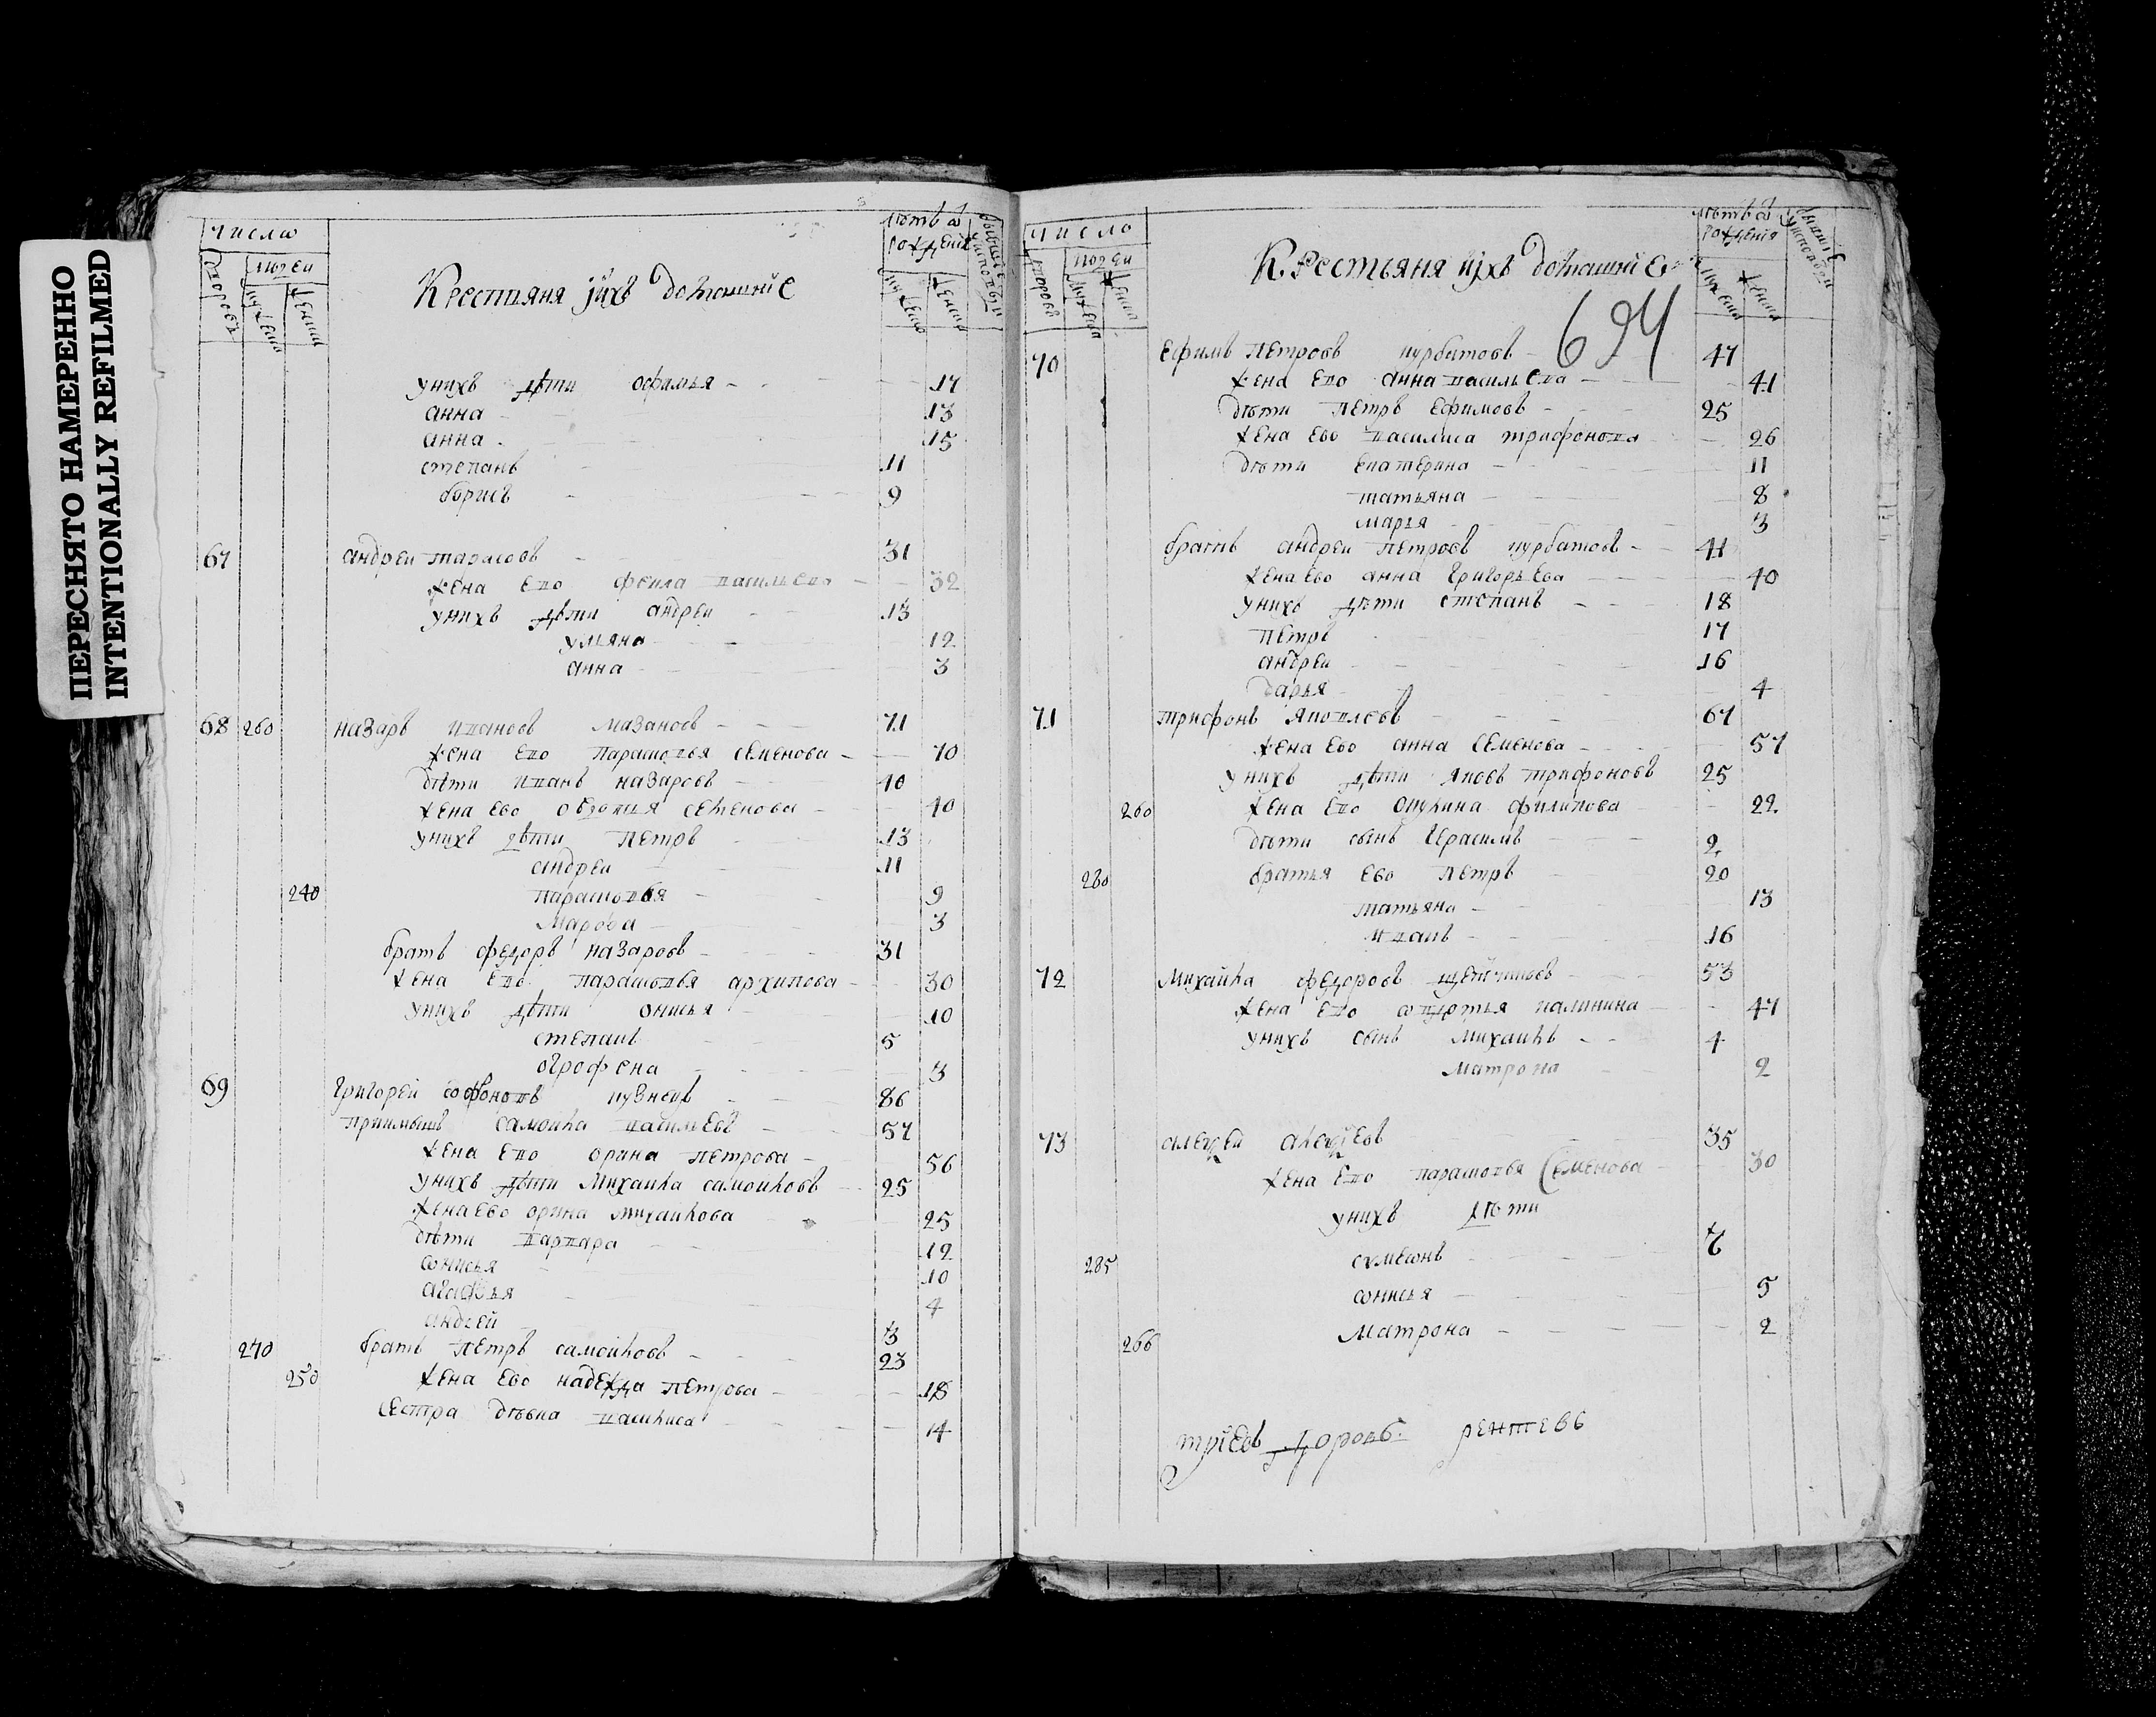 ПЕРЕСНЯТО НАМЕРЕННО
INTENTIONALLY REFILMED
число
людеи
Крестьяня ихъ домашние
лѣтъ ѿ рождения
у нихъ дѣти офимья 17
анна 13
анна 15
степанъ 11
борисъ 9
67 андреи тарасовъ 31
жена ево фекла васильева 32
у нихъ дѣти андреи 13
ульяна 12
анна 3
68 260 назаръ ивановъ мазановъ 71
жена ево парасковья семенова 70
дѣти иванъ назаровъ 40
жена ево овдотия семенова 40
у нихъ дѣти петръ 13
андреи 11
240 парасковья 9
марфа 3
братъ федоръ назаровъ 31
жена ево парасковья архипова 30
у нихъ дѣти онисья 10
степанъ 5
огрофена 3
69 григореи софоновъ кузнецъ 86
приимышъ самоила васильевъ 57
жена ево орина петрова 56
у нихъ дѣти михаила самоиловъ 25
жена ево орина михаилова 25
дѣти варвара 12
ѡнисья 10
агафья 4
андрей 3
270 братъ петръ самоиловъ 23
250 жена ево надежда петрова 18
сестра дѣвка василиса 14
число
людеи
Крестьяня ихъ домашние
лѣтъ ѿ рождения
694
70 ефимъ петровъ курбатовъ 47
жена ево анна васильева 41
дѣти петръ ефимовъ 25
жена ево василиса трифонова 26
дѣти екатерина 11
татьяна 8
марья 3
братъ андреи петровъ курбатовъ 41
жена ево анна григорьева 40
у нихъ дѣти степанъ 18
петръ 17
андреи 16
дарья 4
71 трифонъ яковлевъ 67
жена ево анна семенова 57
у нихъ дѣти яковъ трифоновъ 25
260 жена ево окулина филипова 22
дѣти сынъ герасимъ 2
280 братья ево петръ 20
татьяна 13
иванъ 16
72 михайла федоровъ 53
жена ево калинина 47
у нихъ сынъ михаилъ 4
матрона 2
73 алеѯей алеѯѣевъ 35
жена ево парасковья семенова 30
у нихъ дѣти
285 сѵмеонъ
ѡнисья 5
266 матрона 2
дворовъ